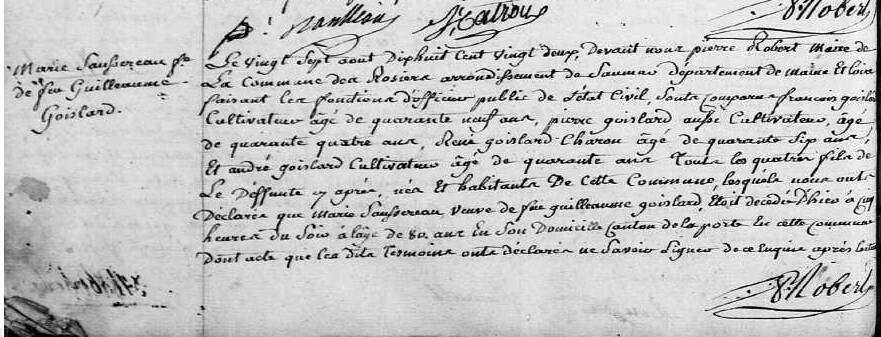 P. Robert
Marie Saussereau fe
de feu Guilleaume
Goislard.
Le vingt Sept aout Dixhuit Cent vingt deux, Devant nous pierre Robert Maire de
La Commune des Rosiers arrondissement de Saumur département de Maine Et Loire
faisant les fonctions d'officier public de l'état Civil, Sont Comparus francois goislard
Cultivateur âgé de quarante neuf ans, pierre goislard aussi Cultivateur, âgé
de quarante quatre ans, René goislard Charon âgé de quarante Six ans,
Et andré goislard Cultivateur âgé de quarante ans Tous les quatres fils de
La Deffunte cy après, nés Et habitants De Cette Commune, lesquels nous onts
Déclarés que Marie Saussereau veuve de feu guilleaume goislard Etoit décédée D'hier à Cinq
heures du Soir à l'age de 80. ans En Son Domicille Canton de la porte En cette commune
Dont acte que les dits Tesmoins onts déclarés ne Savoir Signer de ce Enquis après lecture
P. Robert